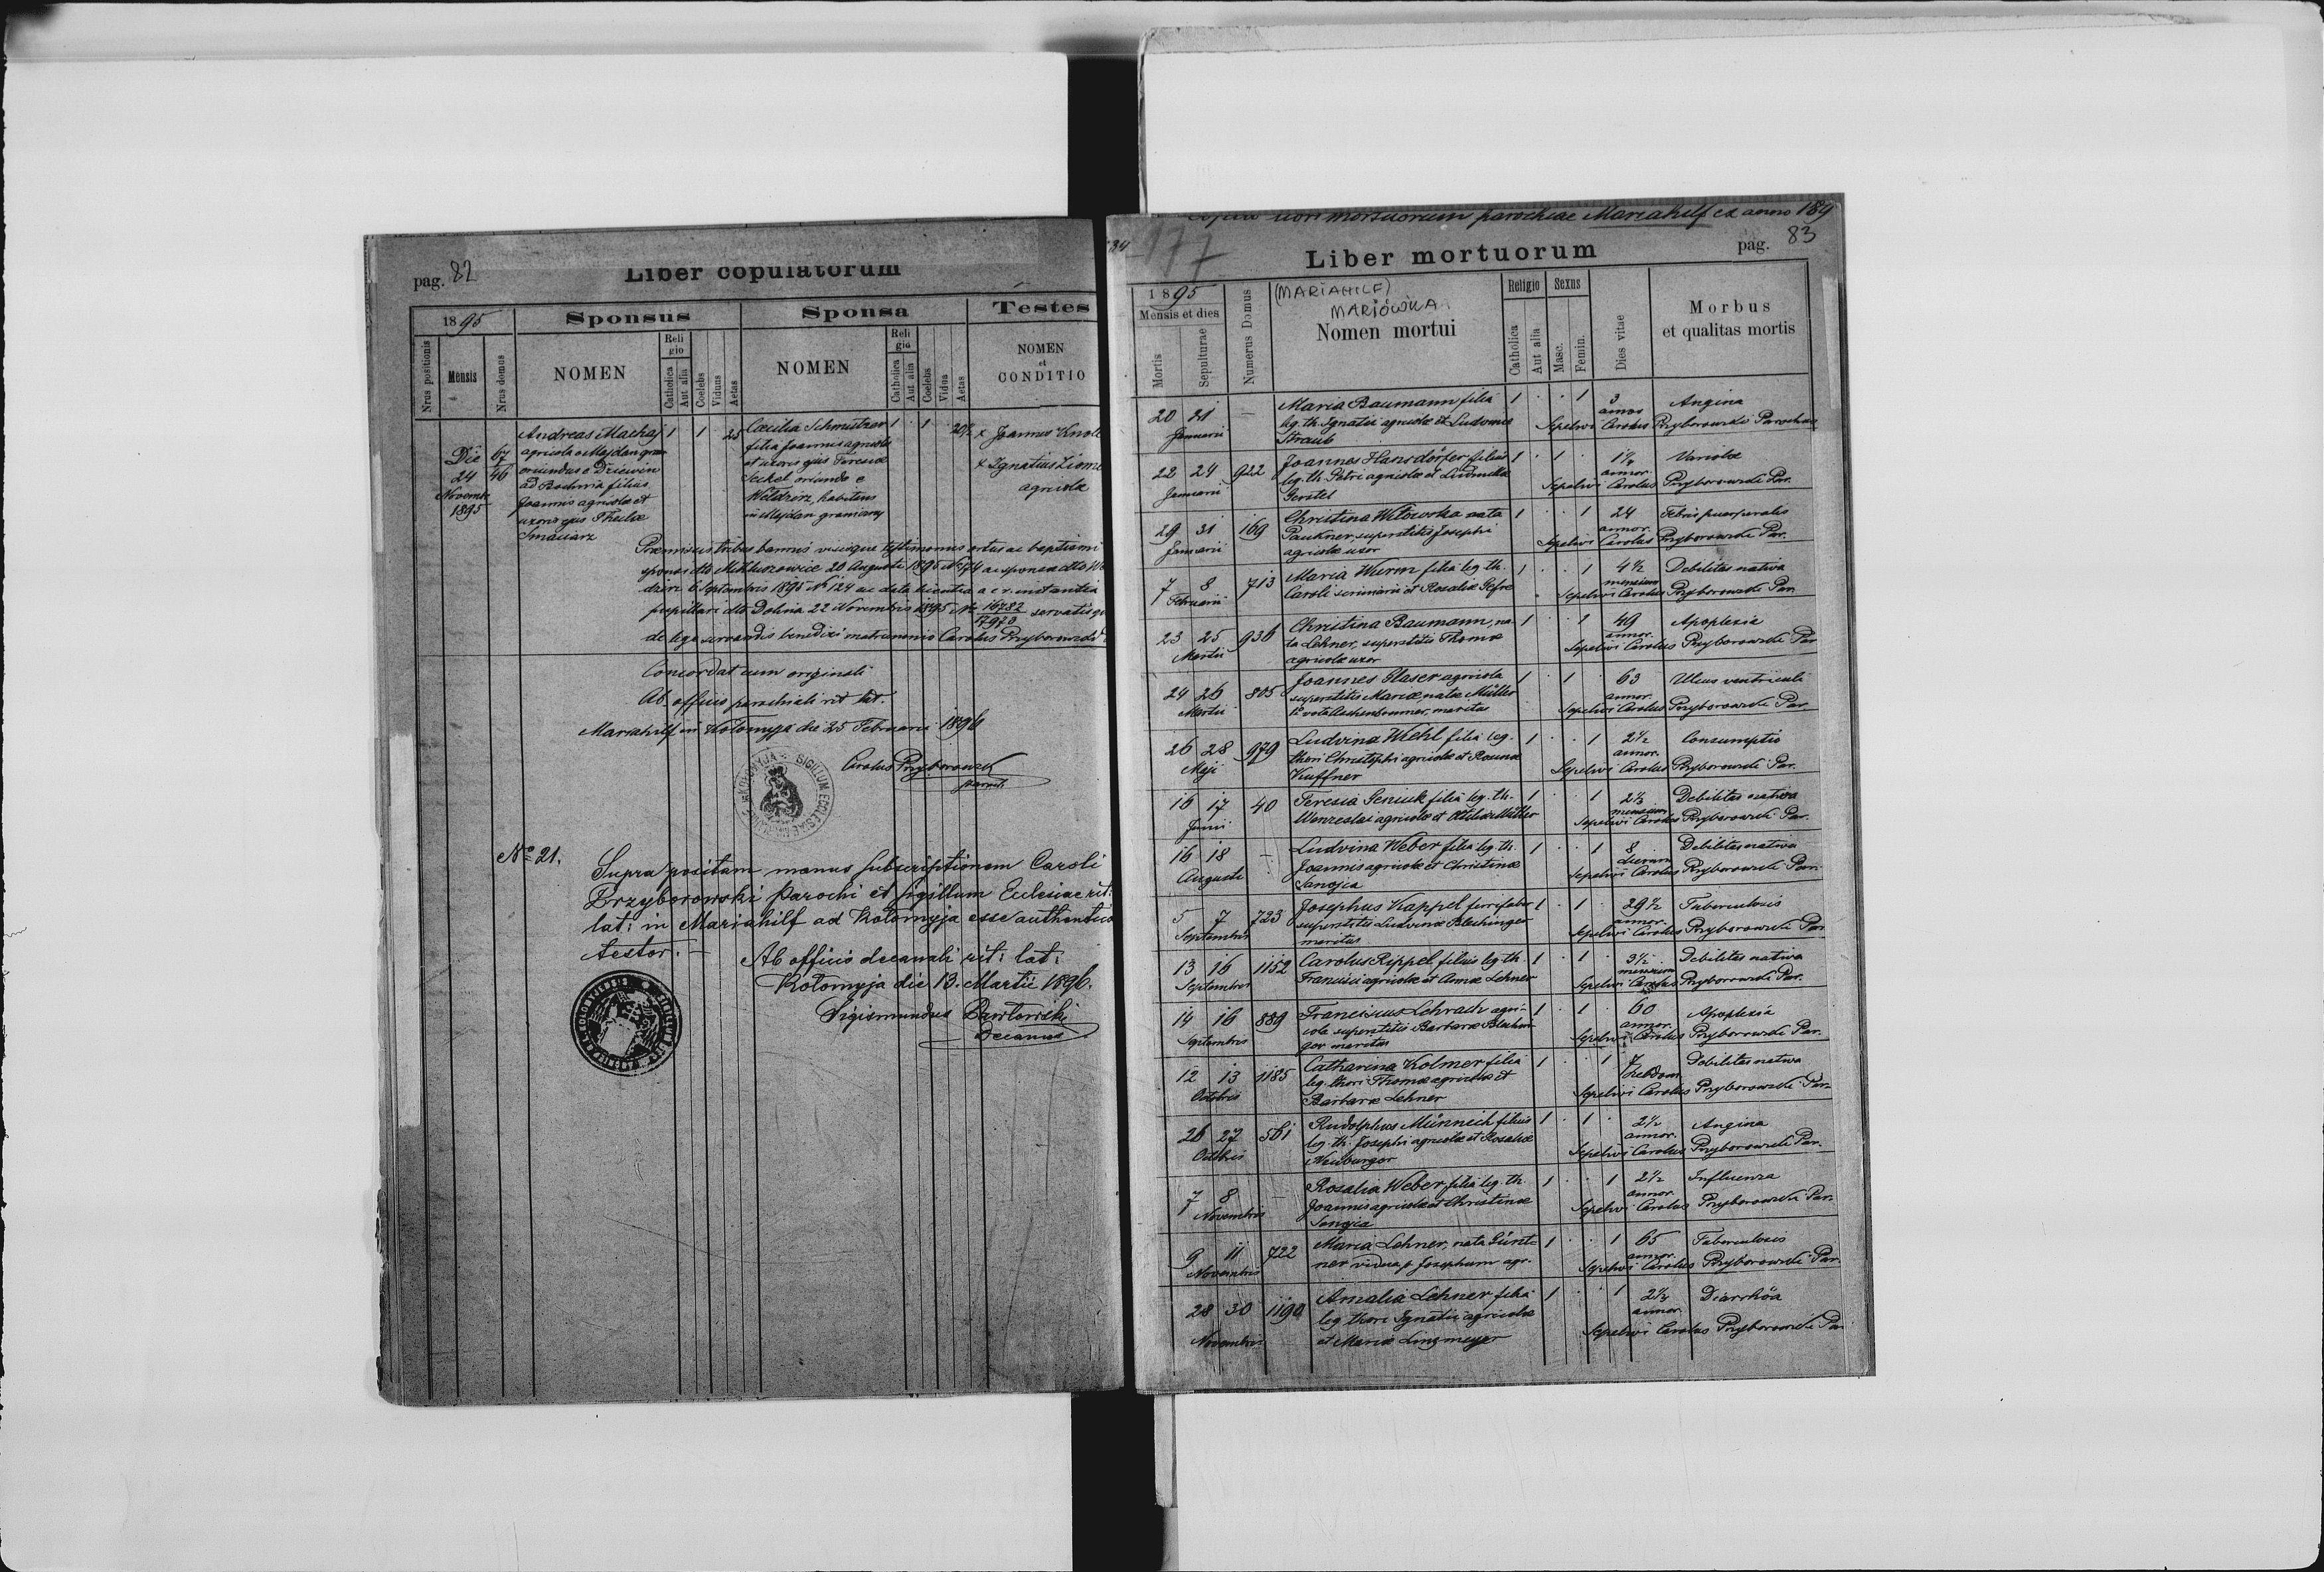 pag. 82
Liber copulatorum
1895
Sponsus
Sponsa
Testes
Nrus positionis
Mensis
Nrus domus
NOMEN
Religio
Catholica
Aut alia
Coelebs
Viduus
Aetas
NOMEN
Religio
Catholica
Aut alia
Coelebs
Vidua
Aetas
NOMEN
et
CONDITIO
Die 24 Novemb 1895
67
46
Andreas Machaj
agricola e Majdan gran
oriundus e Dziewin
ad Bochnia filius
Joannis agricolæ et
uxoris ejus Theclæ
1 1 25
Cæcilia Schmistrer
filia Joannis agricolæ
et uxoris ejus Teresiæ
Seckel oriunda e
Weldzirz, habitans
in Majdan graniczny
1 1
x Joannes Knoll
x Ignatius
agricolæ
Præmissis tribus bannis visisque testimoniis ortus ac baptismi
sponsi dto Mikluszowice 20 Augusti 1895 № 174 ac sponsæ dto
dzirz 6 Septembris 1895 № 124 ac data licentia a c. r. instantia
pupillari dto Dolina 22 Novembris 1895 № 16782 servatis
de lege servandis benedixi matrimonio Carolus Przyborowski
Concordat cum originali
Ab officio parochiali rit lat.
Mariahilf in Kołomyja die 25 Februarii 1896
Carolus Przyborowski
paroch
SIGILLUM ECCLESIAE
№ 21.
Supra positam manus subscriptionem Caroli
Przyborowski parochi et sigillum Ecclesiae rit:
lat: in Mariahilf ad Kołomyja esse authentica
testor. –
Ab officio decanali rit: lat:
Kołomyja die 13. Martii 1896.
Sigismundus Pawłowski
Decanus
libri mortuorum parochiae Mariahilf ex anno 189
177
Liber mortuorum
pag. 83
1895
Mensis et dies
Mortis
Sepulturae
Numerus Domus
(MARIAHILF)
MARIÓWKA
Nomen mortui
Religio
Catholica
Aut alia
Sexus
Masc.
Femin.
Dies vitae
Morbus
et qualitas mortis
20 21 Januarii –
Maria Baumann filia
leg. th. Ignatii agricolæ et Ludovicæ
Straub
1 1 3 annor Angina
Sepelivi Carolus Przyborowski Parochus
22 24 Januarii 922
Joannes Hansdörfer filius
leg. th. Petri agricolæ et Ludmillæ
Gerstel
1 1 1½ annor. Variolæ
Sepelivi Carolus Przyborowski Par.
29 31 Januarii 169
Christina Witowska nata
Paukner, superstitis Josephi
agricolæ uxor
1 1 24 annor. Febris puerperalis
Sepelivi Carolus Przyborowski Par.
7 8 Februarii 713
Maria Wurm filia leg. th.
Caroli scriniarii et Rosaliæ
1 1 4½ mensium Debilitas nativa
Sepelivi Carolus Przyborowski Par
23 25 Martii 936
Christina Baumann, na
ta Lehner, superstitis Thomæ
agricolæ uxor
1 1 49 annor. Apoplexia
Sepelivi Carolus Przyborowski Par
24 26 Martii 805
Joannes Glaser agricola
superstitis Mariæ natæ Müller
1° voto Aschenbrenner, maritus
1 1 63 annor. Ulcus ventriculi
Sepelivi Carolus Przyborowski Par.
26 28 Maji 979
Ludvina Wiehl filia leg.
thori Christophi agricolæ et Rosinæ
Kuffner
1 1 2½ annor. Consumptio
Sepelivi Carolus Przyborowski Par.
16 17 Junii 40
Teresia Seniuk filia leg. th.
Wenzeslai agricolæ et Otiliæ Müller
1 1 2½ mensium Debilitas nativa
Sepelivi Carolus Przyborowski Par.
16 18 Augusti –
Ludvina Weber filia leg. th.
Joannis agricolæ et Christinæ
Sanojca
1 1 8 dierum Debilitas nativa
Sepelivi Carolus Przyborowski Par.
5 7 Septembris 723
Josephus Kappel ferrifaber
superstitis Ludvinæ Blechinger
maritus
1 1 29½ annor. Tuberculosis
Sepelivi Carolus Przyborowski Par
13 16 Septembris 1152
Carolus Rippel filius leg. th.
Francisci agricolæ et Annæ Lehner
1 1 3½ mensium Debilitas nativa
Sepelivi Carolus Przyborowski Par.
14 16 Septembris 889
Franciscus Lehrach agri-
cola superstitis Barbaræ Blechin-
ger maritus
1 1 60 annor. Apoplexia
Sepelivi Carolus Przyborowski Par.
12 13 Octobris 1185
Catharina Kolmer filia
leg. thori Thomæ agricolæ et
Barbaræ Lehner
1 1 7 hebdom Debilitas nativa
Sepelivi Carolus Przyborowski Par.
26 27 Octobris 561
Rudolphus Münnich filius
leg. th. Josephi agricolæ et Rosaliæ
Neuburger
1 1 2½ annor. Angina
Sepelivi Carolus Przyborowski Par.
7 8 Novembris –
Rosalia Weber filia leg. th.
Joannis agricolæ et Christinæ
Sanojca
1 1 2½ annor Influenza
Sepelivi Carolus Przyborowski Par.
9 11 Novembris 722
Maria Lehner, nata Günt-
ner vidua p. Josephum agr.
1 1 65 annor. Tuberculosis
Sepelivi Carolus Przyborowski Par.
28 30 Novembris 1190
Amalia Lehner filia
leg. thori Ignatii agricolæ
et Mariæ Linzmeyer
1 1 2½ annor. Diarrhöa
Sepelivi Carolus Przyborowski Par